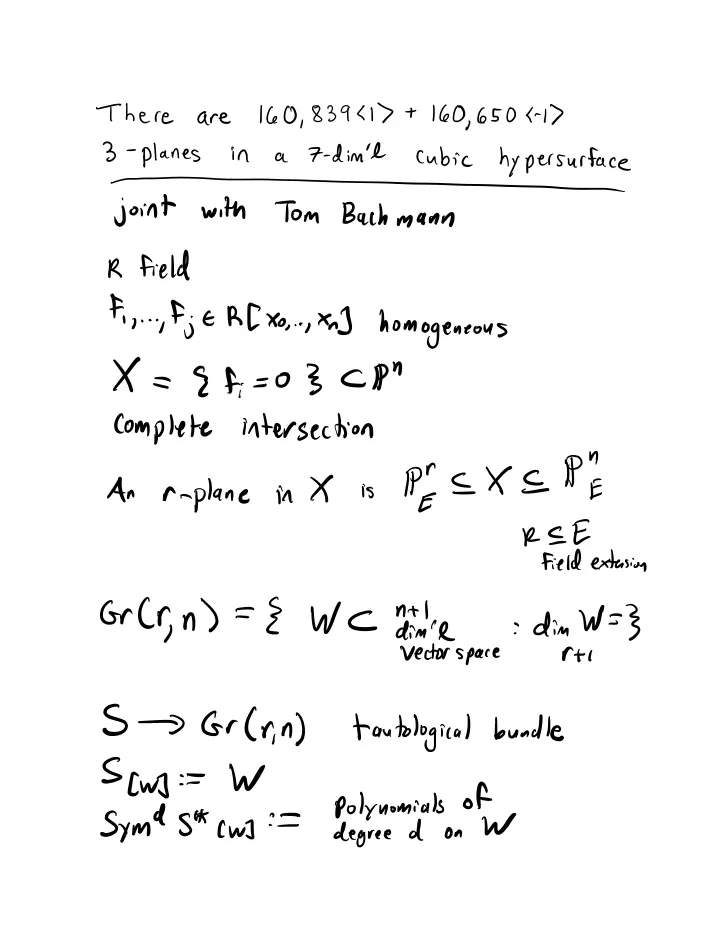 There are 160,839<1> + 160,650<-1>
3-planes in a 7-dim'l cubic hypersurface
joint with Tom Bachmann
k field
f₁,...,fⱼ ∈ k[x₀,..,xₙ] homogeneous
X = {fᵢ=0} ⊂ ℙⁿ
Complete intersection
An r-plane in X is ℙʳ_E ⊆ X ⊆ ℙⁿ_E
k ⊆ E
field extension
Gr(r,n) = { W ⊂ n+1 dim'l vector space : dim W = r+1 }
S → Gr(r,n) tautological bundle
S[W] := W
Symᵈ S* [W] := Polynomials of degree d on W